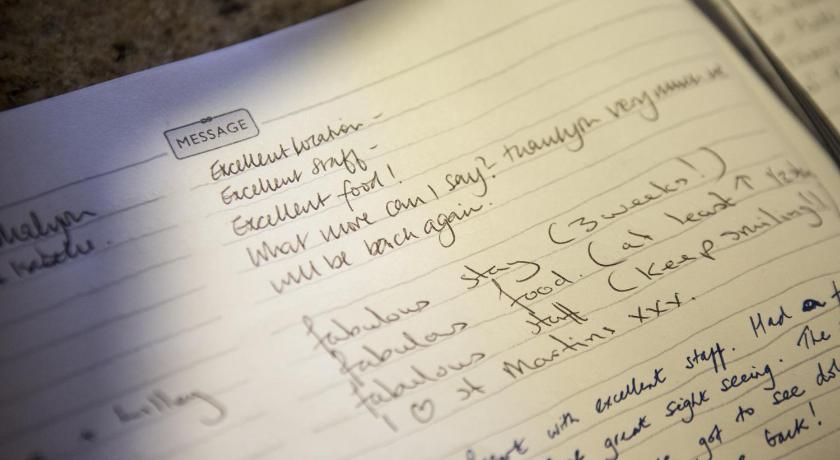 MESSAGE
Excellent location -
Excellent staff -
Excellent food!
What more can I say? thankyou very much we
will be back again.
fabulous stay (3 weeks!)
fabulous food. (at least ↑ 1/2 st
fabulous staff (keep smiling!!
I ♡ St Martins xxx.
with excellent staff. Had a
great sight seeing. The
got to see
back!